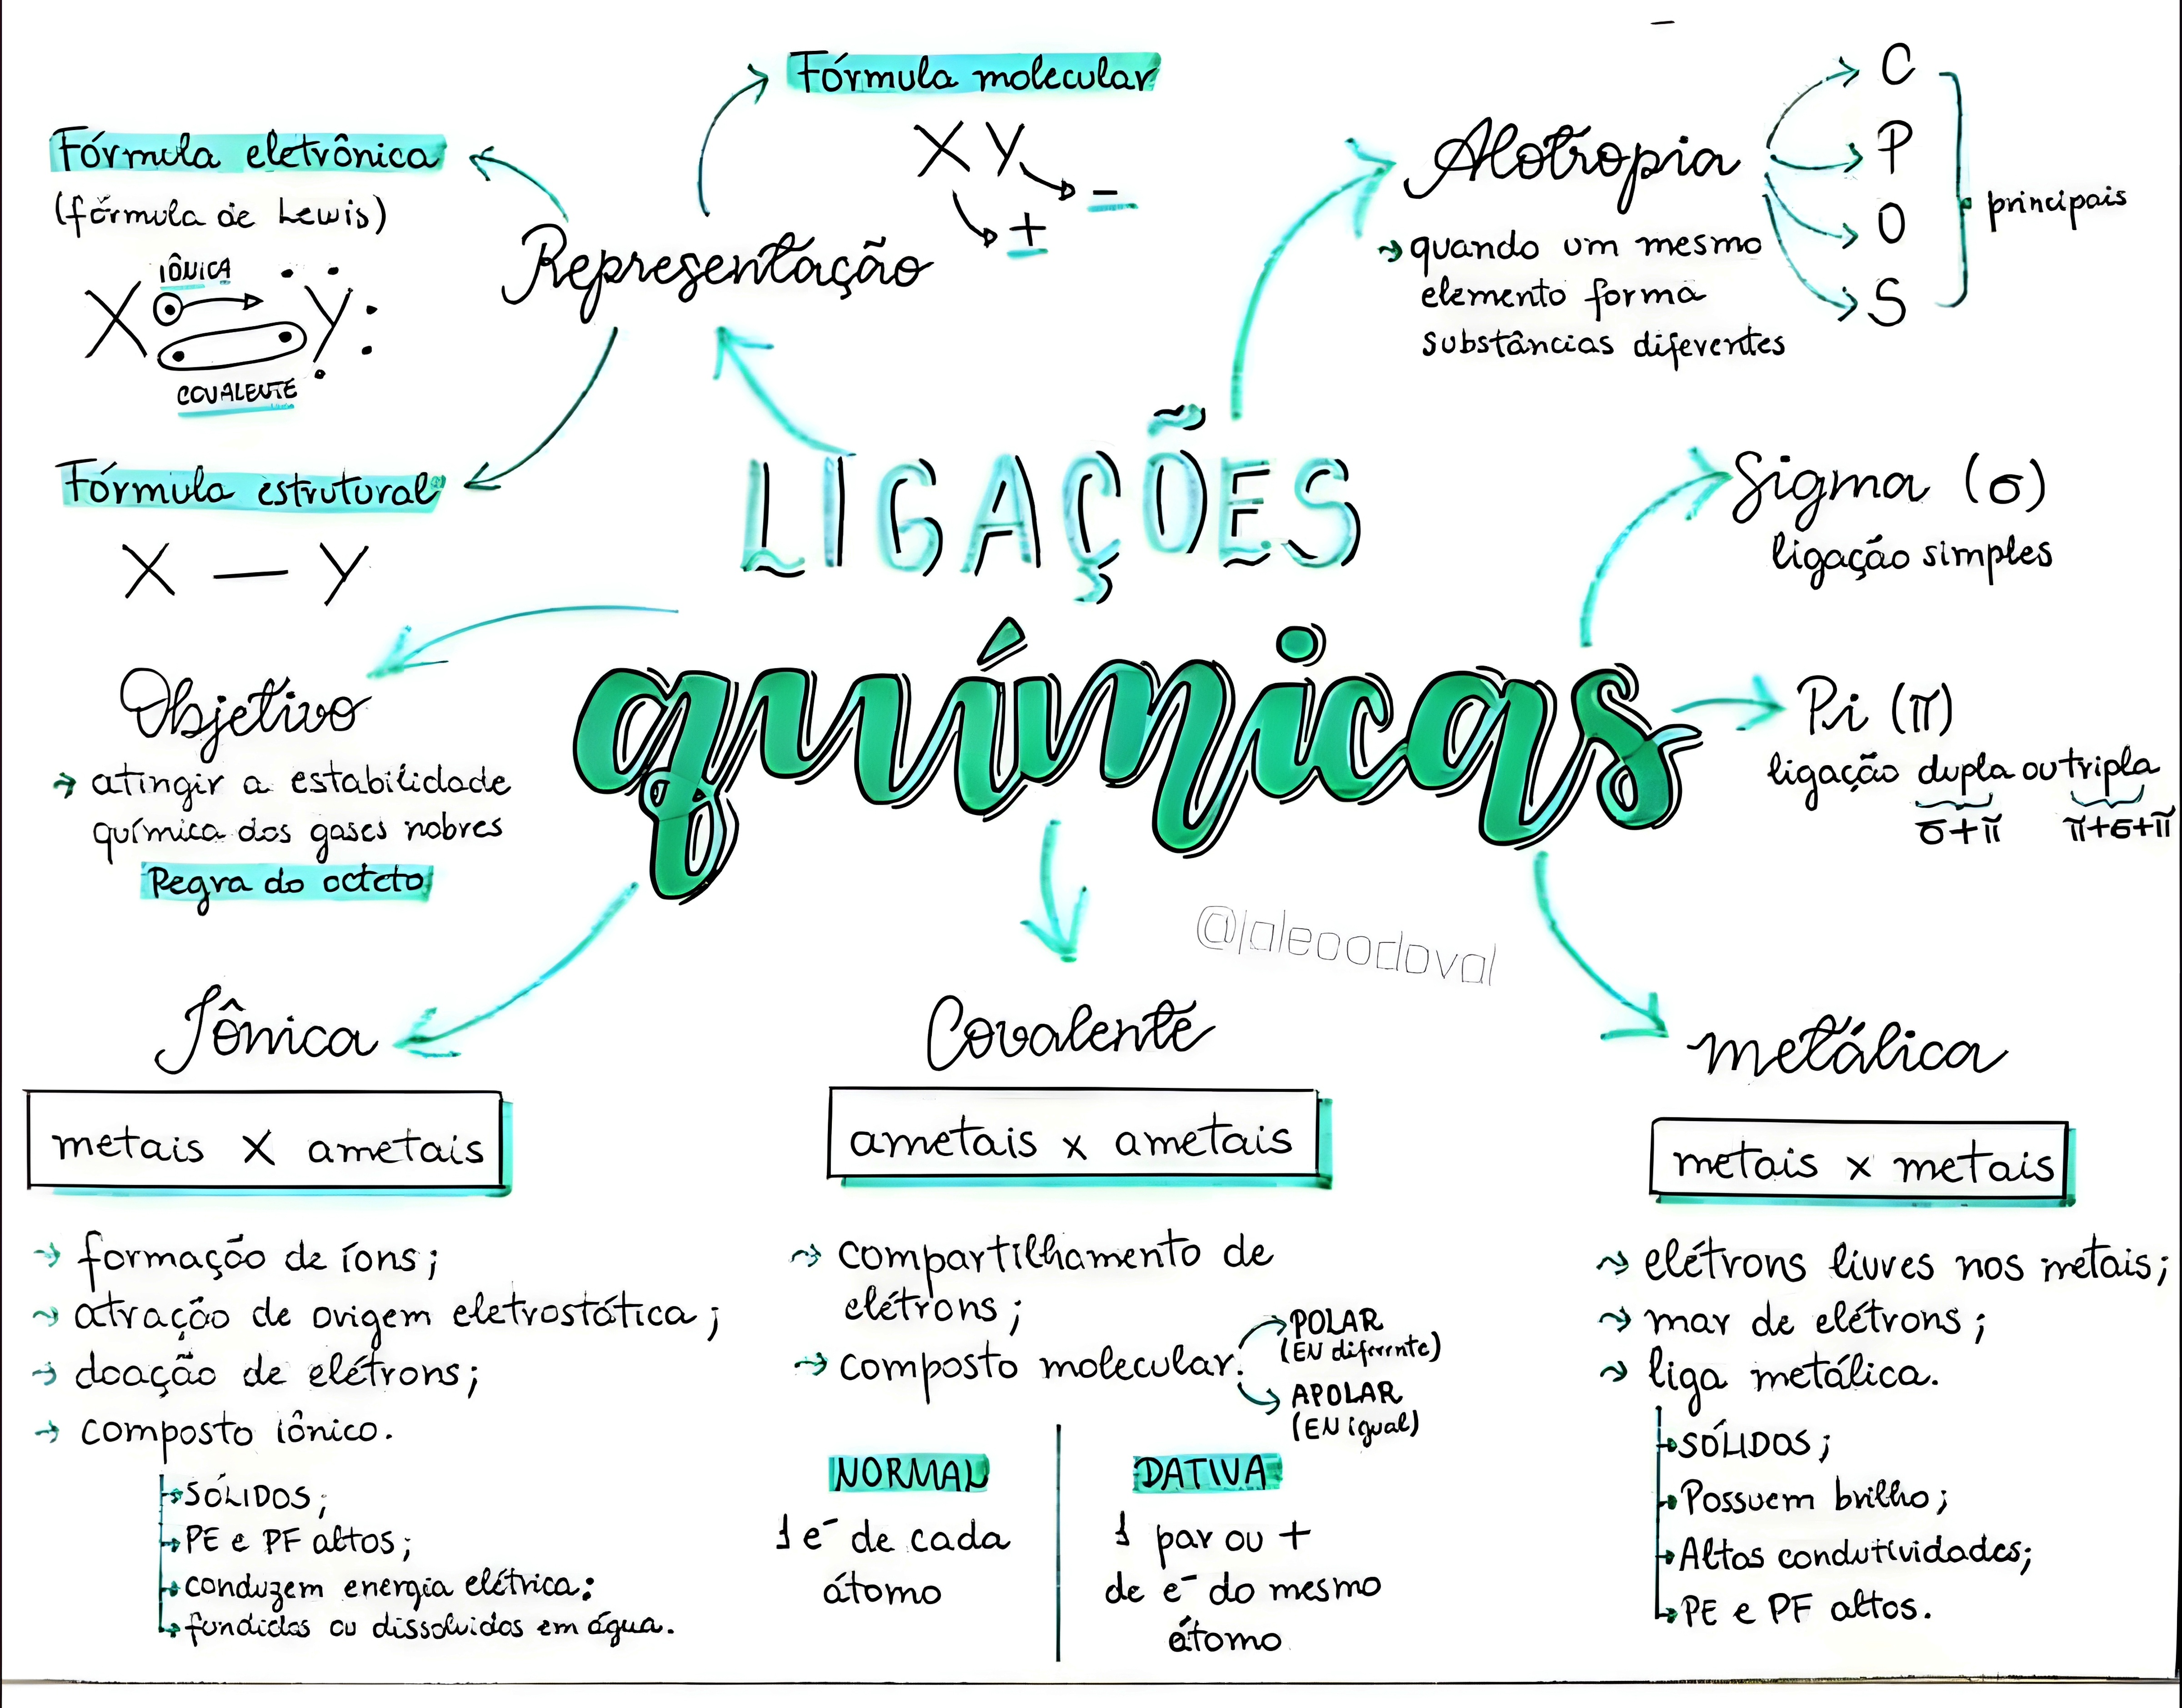 Fórmula molecular
X Y
+
-
Fórmula eletrônica
(fórmula de Lewis)
IÔNICA
X Y
COVALENTE
Representação
Fórmula estrutural
X — Y
Alotropia
→ quando um mesmo
elemento forma
substâncias diferentes
C
P
O
S
principais
LIGAÇÕES
químicas
Sigma (σ)
ligação simples
Pi (π)
ligação dupla ou tripla
σ+π π+σ+π
Objetivo
→ atingir a estabilidade
química dos gases nobres
Regra do octeto
Iônica
metais X ametais
→ formação de íons;
→ atração de origem eletrostática;
→ doação de elétrons;
→ composto iônico.
→ SÓLIDOS;
→ PE e PF altos;
→ conduzem energia elétrica:
→ fundidos ou dissolvidos em água.
Covalente
ametais x ametais
→ compartilhamento de
elétrons;
→ composto molecular.
POLAR
(EN diferente)
APOLAR
(EN igual)
NORMAL
1 e⁻ de cada
átomo
DATIVA
1 par ou +
de e⁻ do mesmo
átomo
metálica
metais x metais
→ elétrons livres nos metais;
→ mar de elétrons;
→ liga metálica.
→ SÓLIDOS;
→ Possuem brilho;
→ Altas condutividades;
→ PE e PF altos.